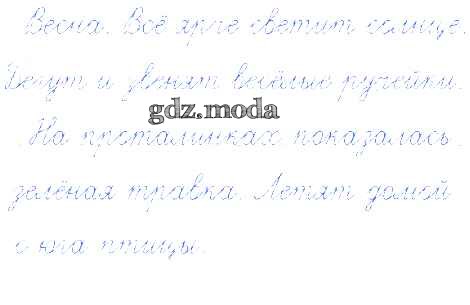 Весна. Всё ярче светит солнце.
Бегут и звенят весёлые ручейки.
gdz.moda
На проталинках показалась
зелёная травка. Летят домой
с юга птицы.